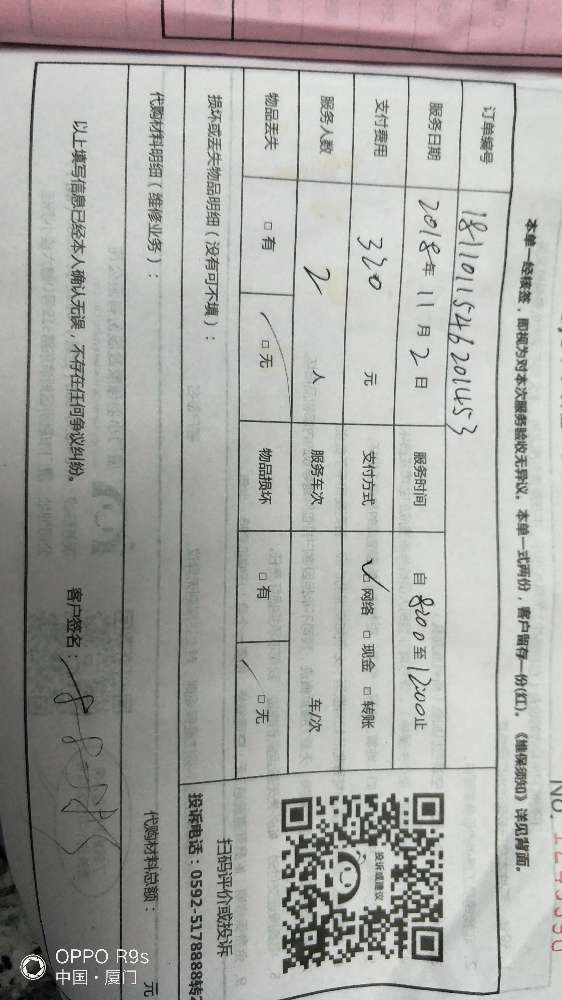 本单一经核签，即视为对本次服务验收无异议。本单一式两份，客户留存一份(红)。《维保须知》详见背面。
订单编号 181101154620 1453
服务日期 2018年11月2日 服务时间 自8:00至12:00止
支付费用 320 元 支付方式 ☑网络 □现金 □转账
服务人数 2 人 服务车次 车/次
物品丢失 □有 □无 物品损坏 □有 □无
损坏或丢失物品明细（没有可不填）：
代购材料明细（维修业务）：
代购材料总额： 元
以上填写信息已经本人确认无误，不存在任何争议纠纷。
客户签名：
投诉或建议
扫码评价或投诉
投诉电话：0592-5178888转
No.
OPPO R9s
中国·厦门